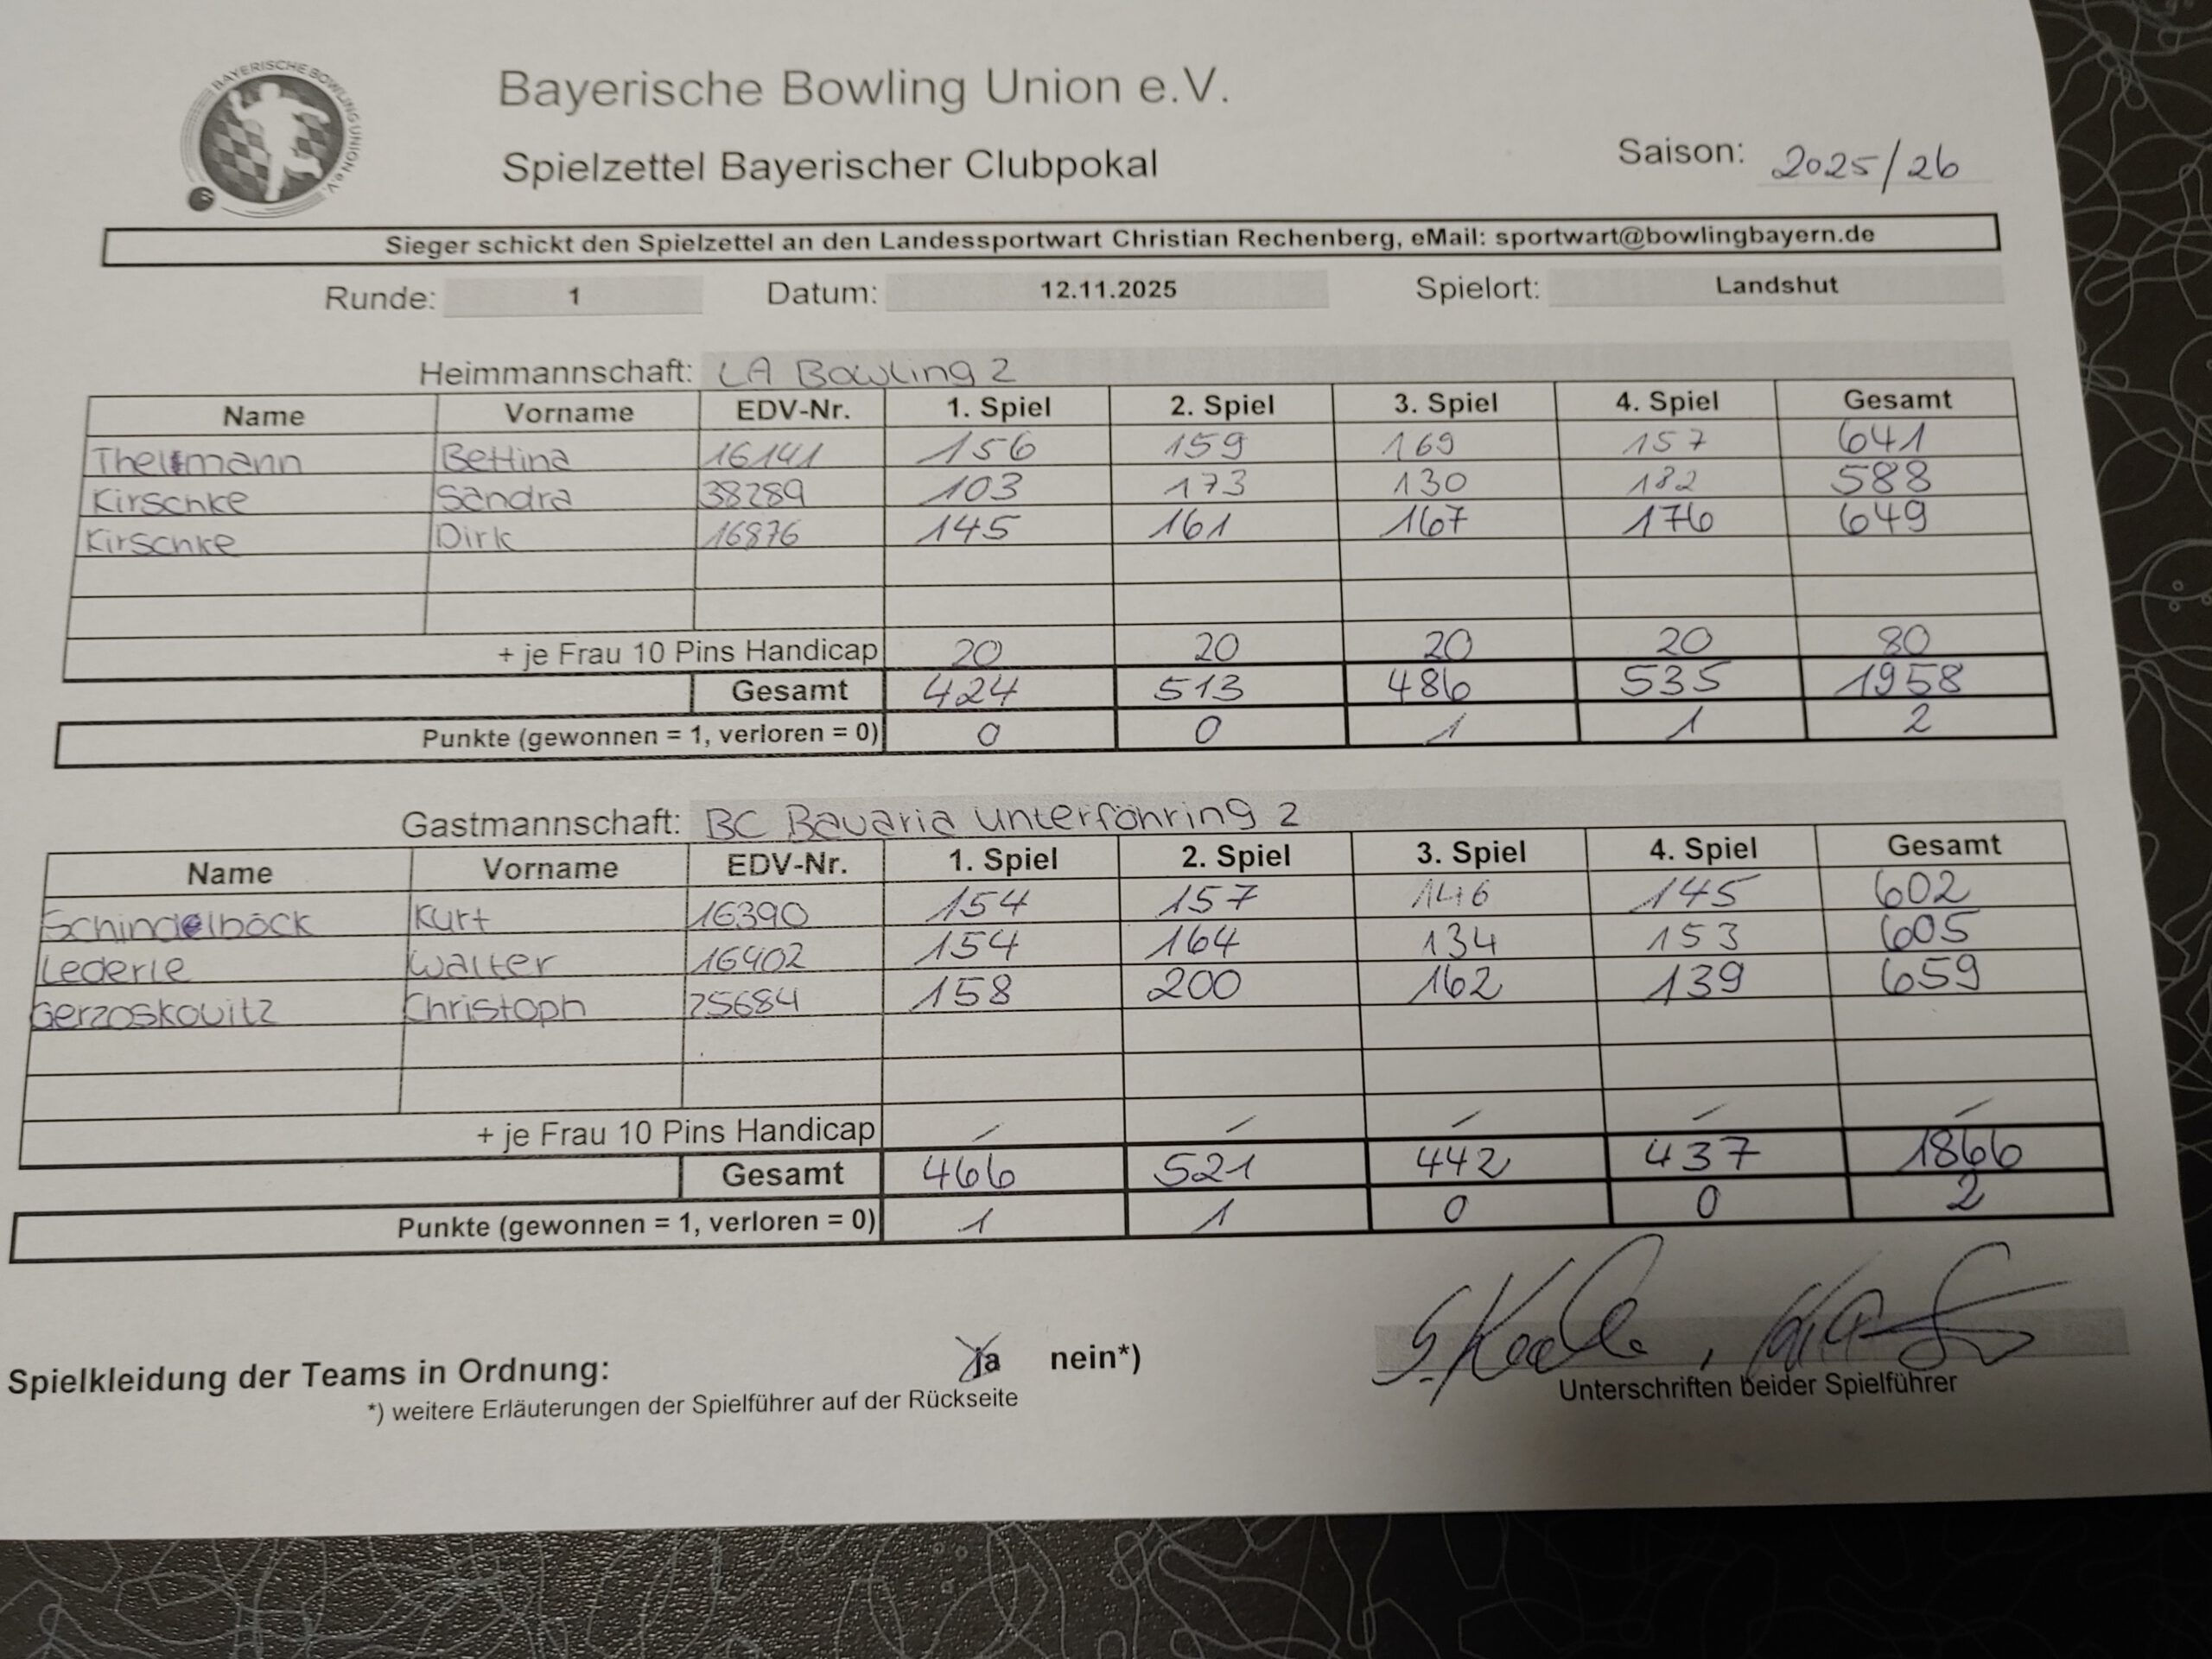 BAYERISCHE BOWLING UNION e.V.
Bayerische Bowling Union e.V.
Spielzettel Bayerischer Clubpokal
Saison: 2025/26
Sieger schickt den Spielzettel an den Landessportwart Christian Rechenberg, eMail: sportwart@bowlingbayern.de
Runde: 1 Datum: 12.11.2025 Spielort: Landshut
Heimmannschaft: LA Bowling 2
Name Vorname EDV-Nr. 1. Spiel 2. Spiel 3. Spiel 4. Spiel Gesamt
Bettina 16141 156 159 169 157 641
Kirschke Sandra 38289 103 173 130 182 588
Kirschke Dirk 16876 145 161 167 176 649
+ je Frau 10 Pins Handicap 20 20 20 20 80
Gesamt 424 513 486 535 1958
Punkte (gewonnen = 1, verloren = 0) 0 0 1 1 2
Gastmannschaft: BC Bavaria Unterföhring 2
Name Vorname EDV-Nr. 1. Spiel 2. Spiel 3. Spiel 4. Spiel Gesamt
Schindelböck Kurt 16390 154 157 146 145 602
Lederle Walter 16402 154 164 134 153 605
Gerzoskovitz Christoph 25684 158 200 162 139 659
+ je Frau 10 Pins Handicap / / / / /
Gesamt 466 521 442 437 1866
Punkte (gewonnen = 1, verloren = 0) 1 1 0 0 2
Spielkleidung der Teams in Ordnung: ja nein*)
*) weitere Erläuterungen der Spielführer auf der Rückseite
Unterschriften beider Spielführer